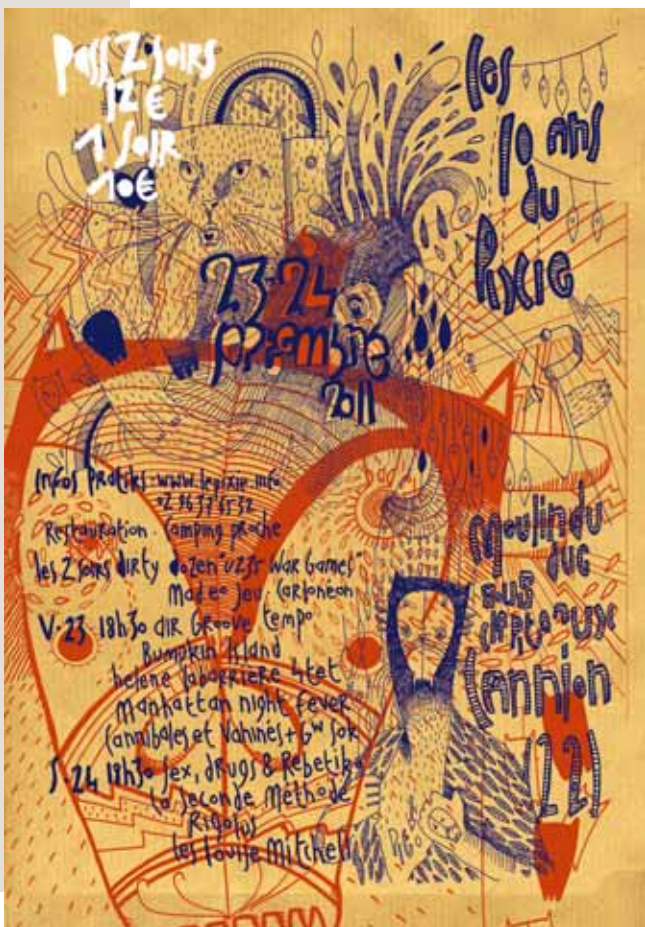 Pass 2 soirs
12 €
1 soir
10€
les
10 ans
du
Pixie
23-24
septembre
2011
Infos Pratiks - www.lepixie.info
02 96 37
Restauration . Camping proche
les 2 soirs dirty dozen "U235 War Games"
Madeo jeu Cartoneon
V. 23 18h30 dIR Groove tempo
Bumpkin Island
helene labarriere 4tet
Manhattan night fever
Cannibales et Vahinés + GW Sok
S. 24 18h30 Sex, dRugs & Rebetiko
la Seconde Méthode
Rigolus
les louise Mitchell
Moulin du
duc
sous
chapiteaux
lannion
(22)